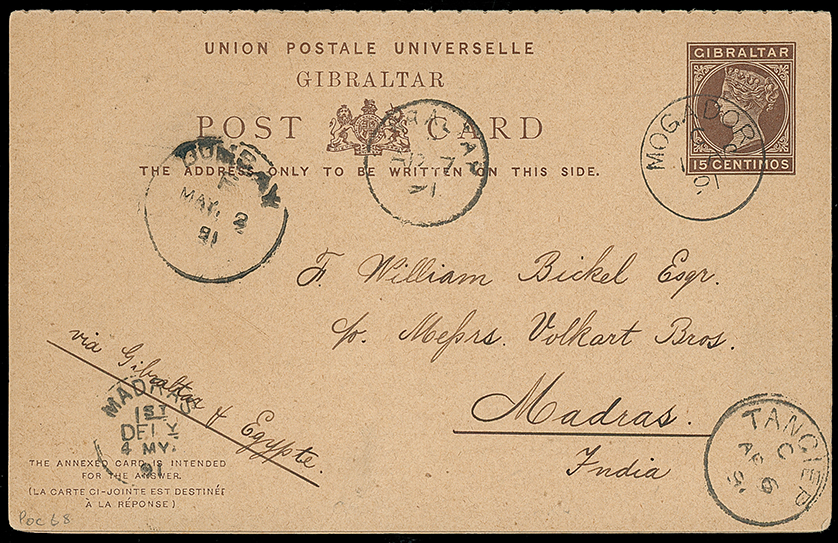 UNION POSTALE UNIVERSELLE
GIBRALTAR
POST CARD
THE ADDRESS ONLY TO BE WRITTEN ON THIS SIDE.
GIBRALTAR
15 CENTIMOS
MOGADOR
C
91
BOMBAY
MAY. 2
91
F. William Bickel Esqr.
c/o. Messrs. Volkart Bros.
Madras.
India
via Gibraltar & Egypte.
MADRAS
1ST
DELY
4 MY.
91
TANGIER
C
AP 6
91
THE ANNEXED CARD IS INTENDED
FOR THE ANSWER.
(LA CARTE CI-JOINTE EST DESTINÉE
À LA RÉPONSE)
Poc 68